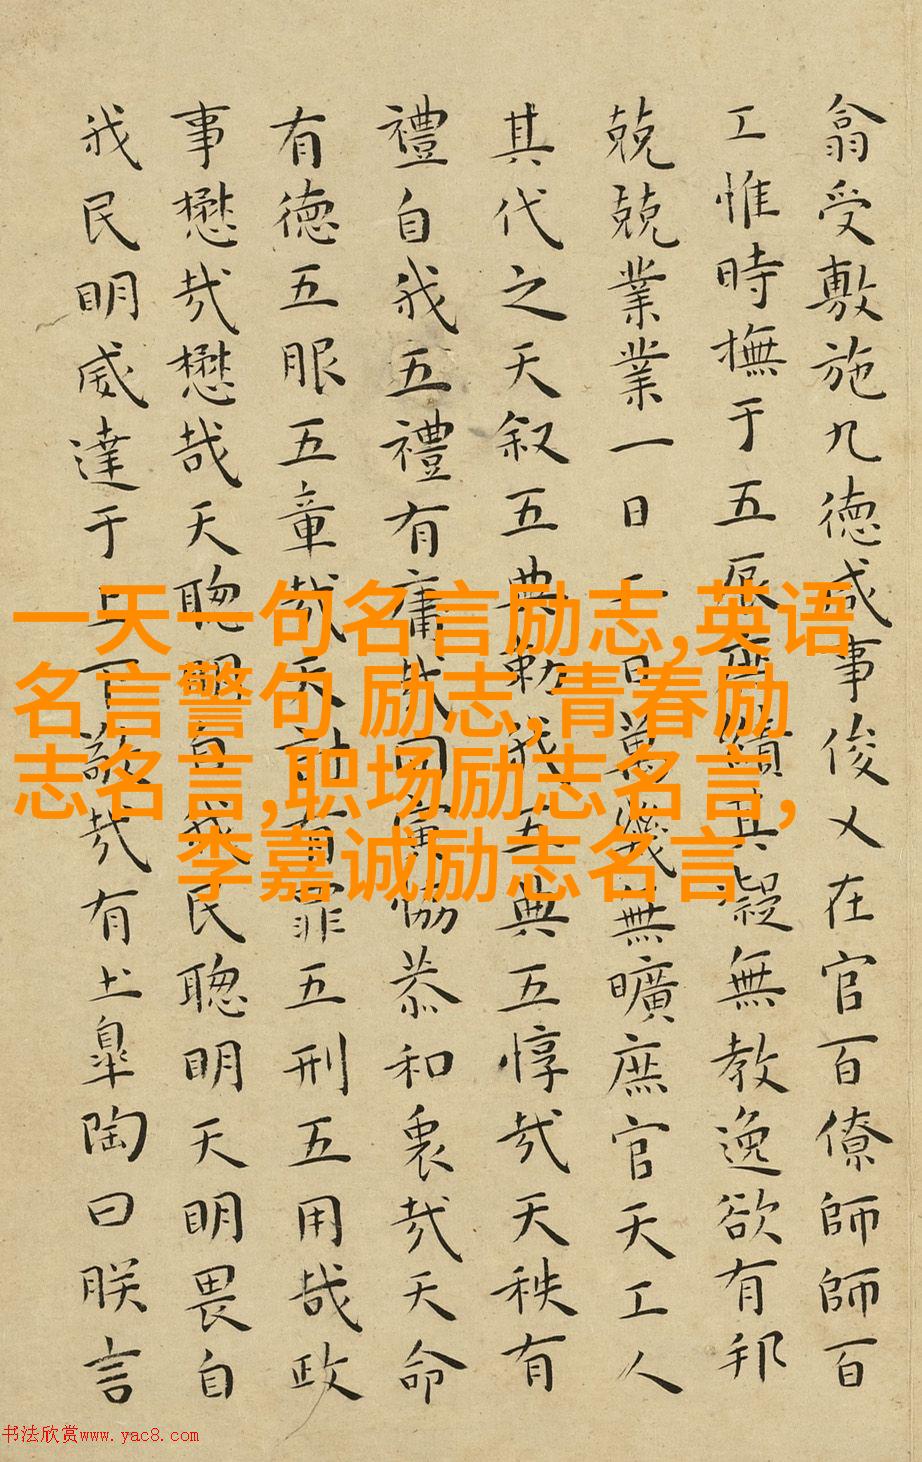 翕受敷施九德咸事俊乂在官百僚師師百
工惟時撫于五辰庶績其凝無教逸欲有邦
兢兢業業一日二日萬幾無曠庶官天工人
其代之天叙五典勅我五典五惇哉天秩有
禮自我五禮有庸哉同寅協恭和衷哉天命
有德五服五章哉天討有罪五刑五用哉政
事懋哉懋哉天聰明自我民聰明天明畏自
我民明威達于上下敬哉有土皐陶曰朕言
一天一句名言励志,英语
名言警句 励志,青春励
志名言,职场励志名言,
李嘉诚励志名言
书法欣赏www.yac8.com